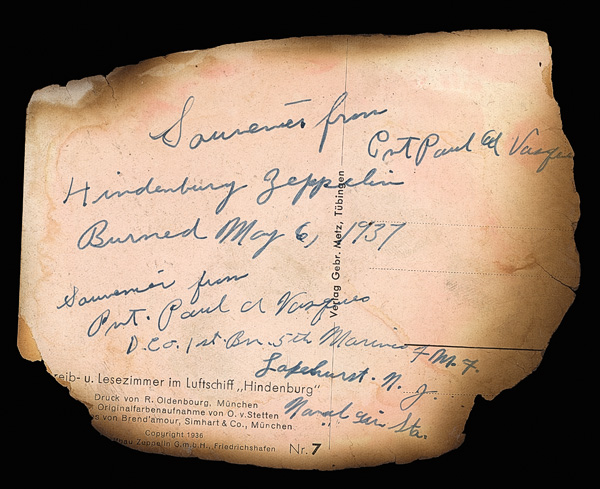 Souvenir from
Pvt Paul d Vasque
Hindenburg Zeppelin
Burned May 6, 1937
Souvenir from
Pvt. Paul d Vasques
D. Co. 1st Bn. 5th Marines F. M. F.
Lakehurst. N. J.
Naval Air Sta.
Verlag Gebr. Metz, Tübingen
reib- u. Lesezimmer im Luftschiff „Hindenburg"
Druck von R. Oldenbourg, München
Originalfarbenaufnahme von O. v. Stetten
s von Brend'amour, Simhart & Co., München
Copyright 1936
bau Zeppelin G.m.b.H., Friedrichshafen
Nr. 7